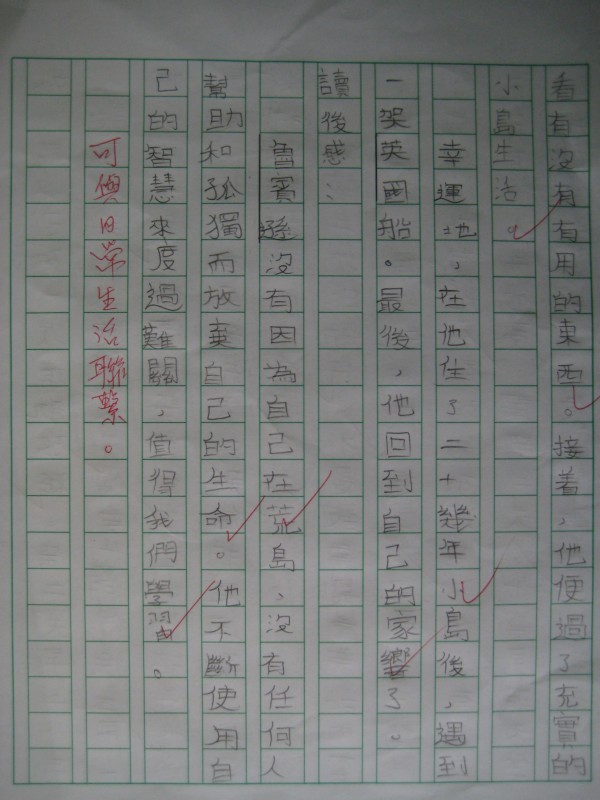 看有沒有有用的東西。接着，他便過了充實的
小島生活。
幸運地，在他住了二十幾年小島後，遇到
一架英國船。最後，他回到自己的家鄉了。
讀後感：
魯賓遜沒有因為自己在荒島，沒有任何人
幫助和孤獨而放棄自己的生命。他不斷使用自
己的智慧來度過難關，值得我們學習。
可與日常生活聯繫。